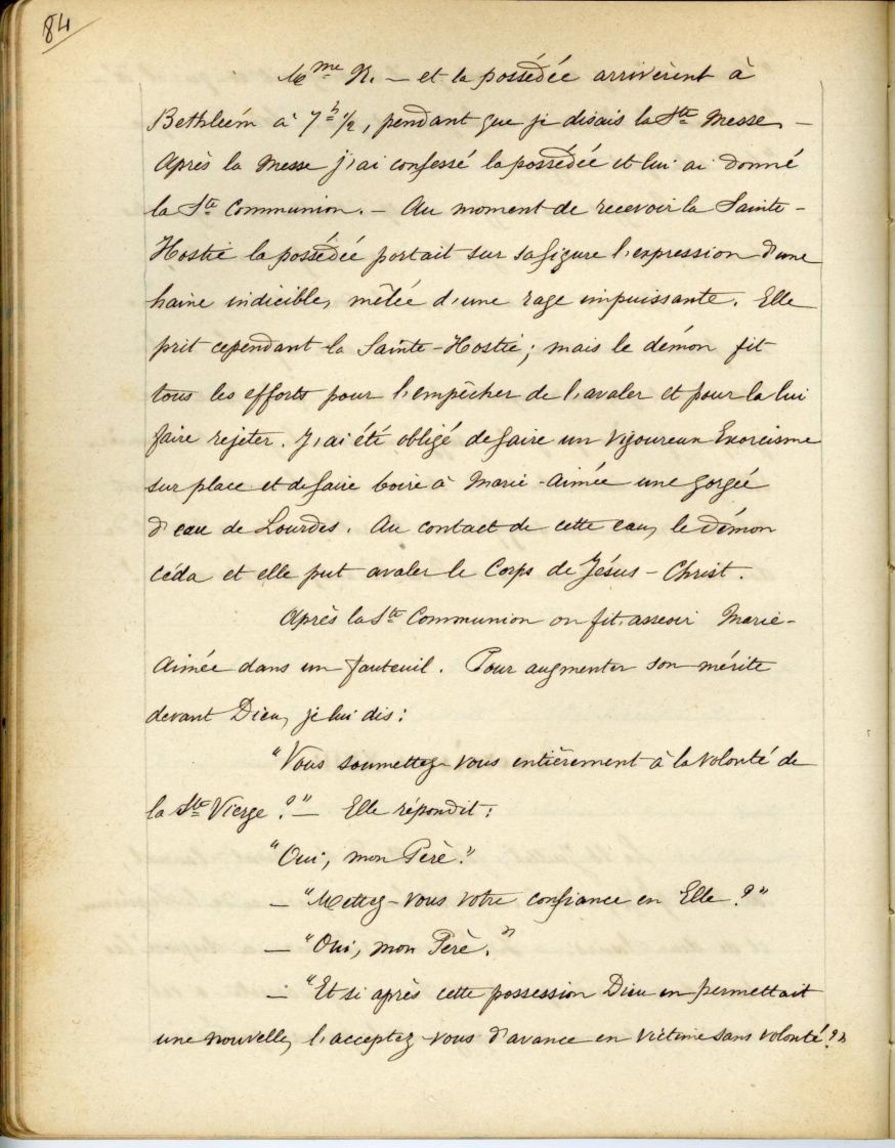 84
Mme N. — et la possédée arrivèrent à
Bethléem à 7h 1/2, pendant que je disais la Ste Messe. —
Après la Messe j'ai confessé la possédée et lui ai donné
la Ste Communion. — Au moment de recevoir la Sainte-
Hostie la possédée portait sur sa figure l'expression d'une
haine indicible, mêlée d'une rage impuissante. Elle
prit cependant la Sainte-Hostie; mais le démon fit
tous les efforts pour l'empêcher de l'avaler et pour la lui
faire rejeter. J'ai été obligé de faire un vigoureux Exorcisme
sur place et de faire boire à Marie-Aimée une gorgée
d'eau de Lourdes. Au contact de cette eau, le démon
céda et elle put avaler le Corps de Jésus-Christ.
Après la Ste Communion on fit asseoir Marie-
Aimée dans un fauteuil. Pour augmenter son mérite
devant Dieu, je lui dis:
"Vous soumettez-vous entièrement à la volonté de
la Ste Vierge?" — Elle répondit:
"Oui, mon Père."
— "Mettez-vous votre confiance en Elle?"
— "Oui, mon Père."
— "Et si après cette possession Dieu en permettait
une nouvelle, l'acceptez-vous d'avance en victime sans volonté?"